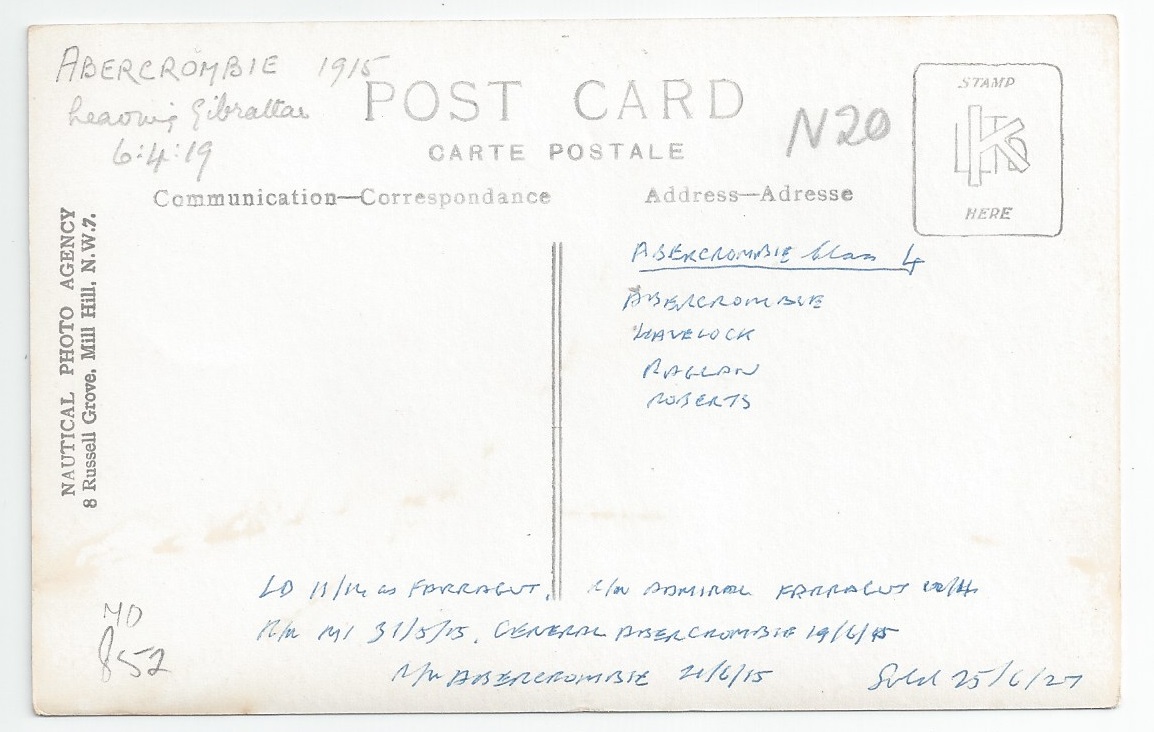 ABERCROMBIE 1915
Leaving Gibraltar
6:4:19
POST CARD
CARTE POSTALE
N20
STAMP
HERE
Communication—Correspondance
Address—Adresse
NAUTICAL PHOTO AGENCY
8 Russell Grove, Mill Hill, N.W.7.
ABERCROMBIE Class 4
ABERCROMBIE
HAVELOCK
RAGLAN
ROBERTS
LD 11/14 as FARRAGUT. R/n ADMIRAL FARRAGUT
R/n M1 31/5/15, GENERAL ABERCROMBIE 19/6/15
R/n ABERCROMBIE 21/6/15 Sold 25/6/27
852